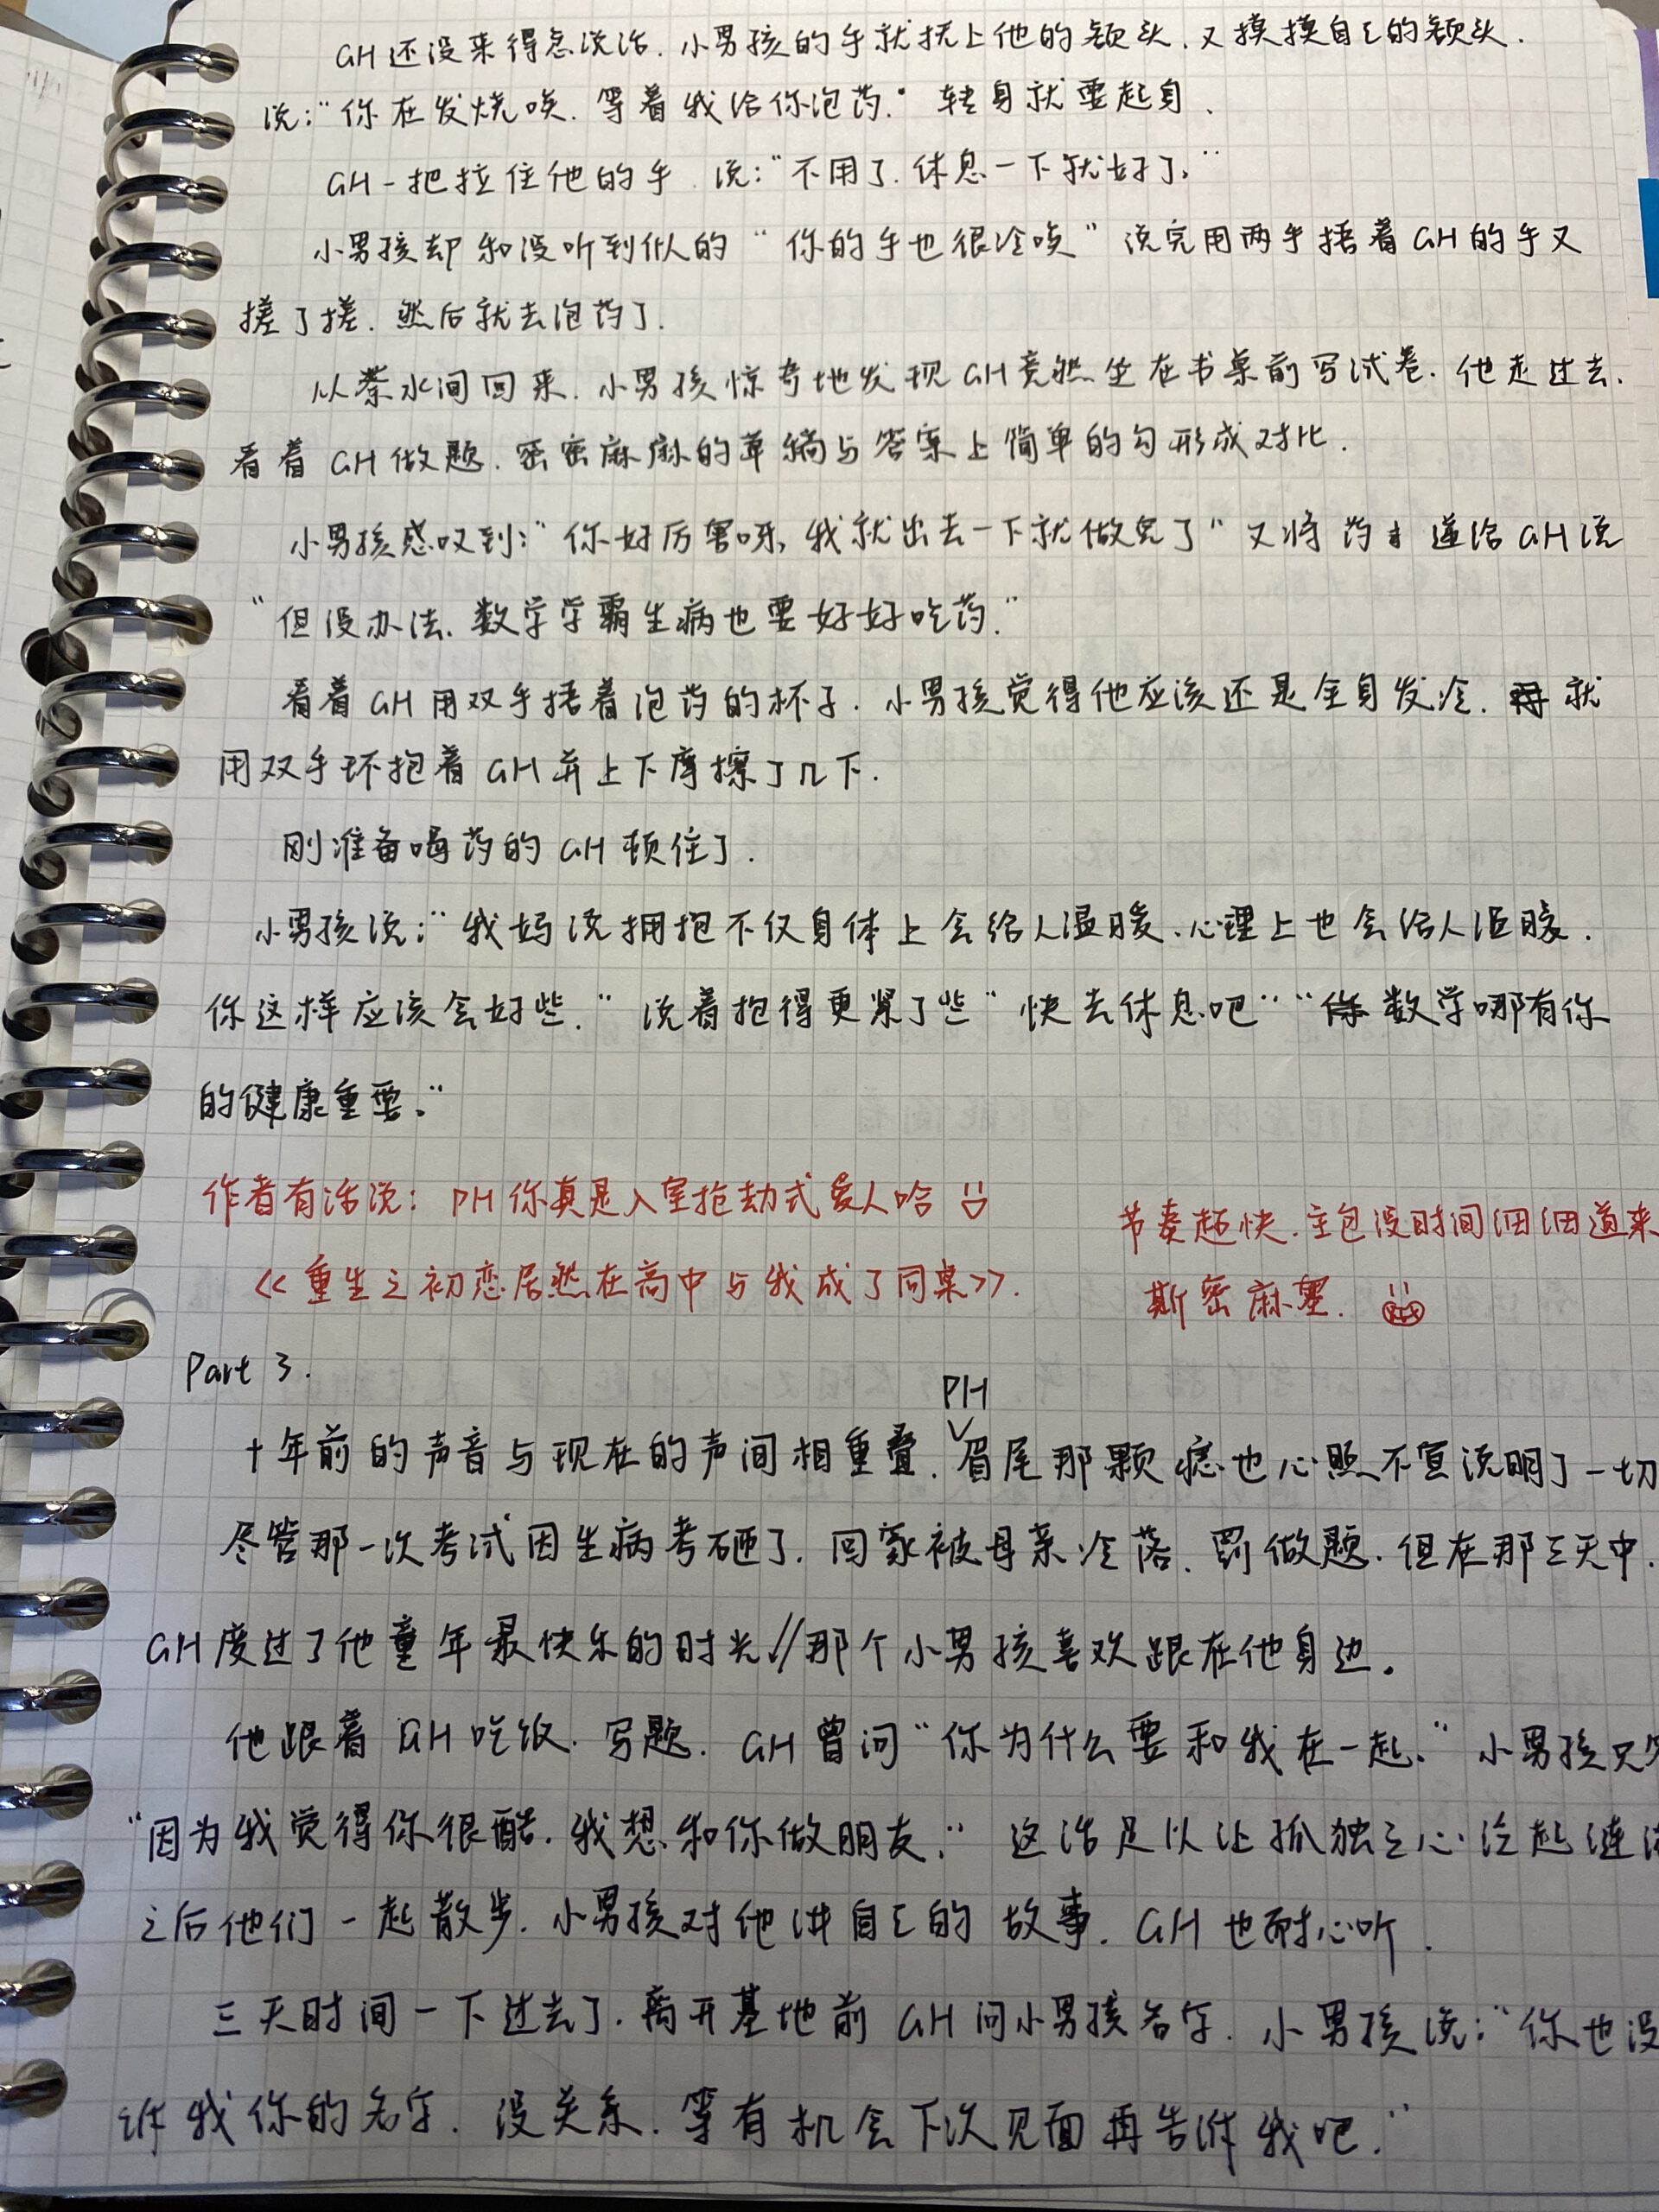 GH还没来得急说话.小男孩的手就抚上他的额头.又摸摸自己的额头.
说:“你在发烧唉.等着我给你泡药.”转身就要起身.
GH一把拉住他的手.说:“不用了.休息一下就好了.”
小男孩却和没听到似的“你的手也很冷唉”说完用两手捂着GH的手又
搓了搓.然后就去泡药了.
从茶水间回来.小男孩惊奇地发现GH竟然坐在书桌前写试卷.他走过去.
看着GH做题.密密麻麻的草稿与答案上简单的勾形成对比.
小男孩感叹到:“你好厉害呀,我就出去一下就做完了”又将药递给GH说
“但没办法.数学学霸生病也要好好吃药.”
看着GH用双手捂着泡药的杯子.小男孩觉得他应该还是全身发冷.就
用双手环抱着GH并上下摩擦了几下.
刚准备喝药的GH顿住了.
小男孩说:“我妈说拥抱不仅身体上会给人温暖.心理上也会给人温暖.
你这样应该会好些.”说着抱得更紧了些“快去休息吧”“数学哪有你
的健康重要.”
作者有话说:PH你真是入室抢劫式爱人哈
节奏超快.主包没时间细细道来
《重生之初恋居然在高中与我成了同桌》.
斯密麻塞.
Part 3.
PH
十年前的声音与现在的声间相重叠.眉尾那颗痣也心照不宣说明了一切
尽管那一次考试因生病考砸了.回家被母亲冷落.罚做题.但在那三天中.
GH度过了他童年最快乐的时光//那个小男孩喜欢跟在他身边。
他跟着GH吃饭.写题.GH曾问“你为什么要和我在一起.”小男孩只
“因为我觉得你很酷.我想和你做朋友.”这话足以让孤独之心泛起涟
之后他们一起散步.小男孩对他讲自己的故事.GH也耐心听.
三天时间一下过去了.离开基地前GH问小男孩名字.小男孩说:“你也没
诉我你的名字.没关系.等有机会下次见面再告诉我吧.”